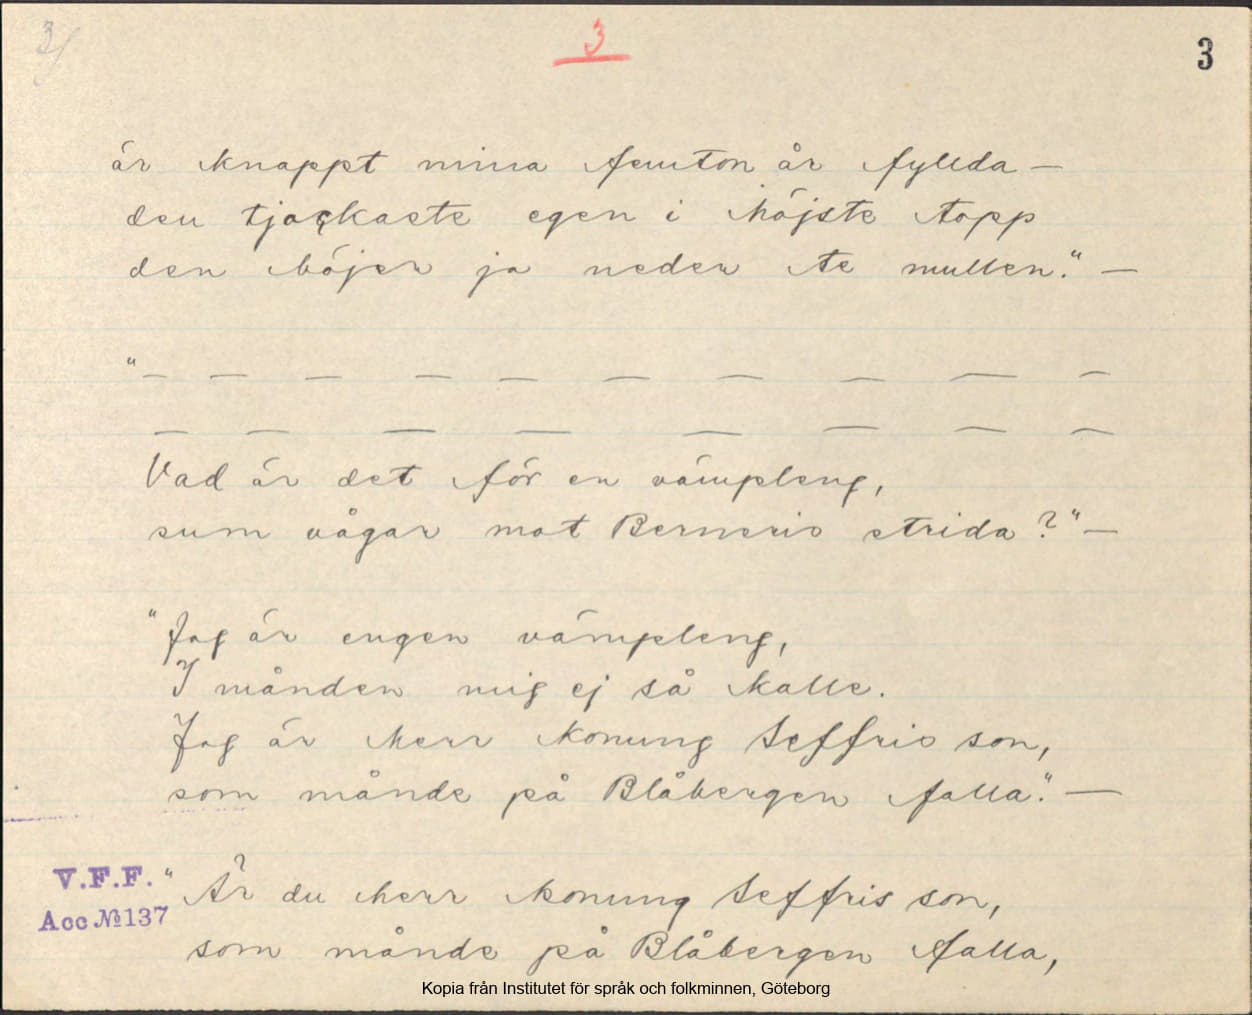 3/
3
3
är knappt mina femton år fyllda —
den tjockaste egen i höjste topp
den böjer ja neder te mullen." —
"— — — — — — — — — —
— — — — — — — —
Vad är det för en vämpleng,
sum vågar mot Berneris strida?" —
"Jag är engen vämpleng,
I månden mig ej så kalle.
Jag är herr konung Seffris son,
som månde på Blåbergen falla." —
V.F.F.
Acc № 137
"Är du herr konung Seffris son,
som månde på Blåbergen falla,
Kopia från Institutet för språk och folkminnen, Göteborg